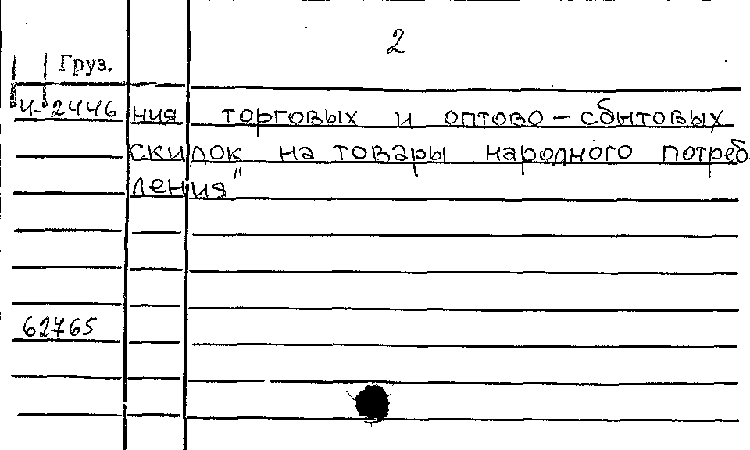 2
Груз.
И-2446 ния торговых и оптово-сбытовых
скидок на товары народного потреб
ления"
62765